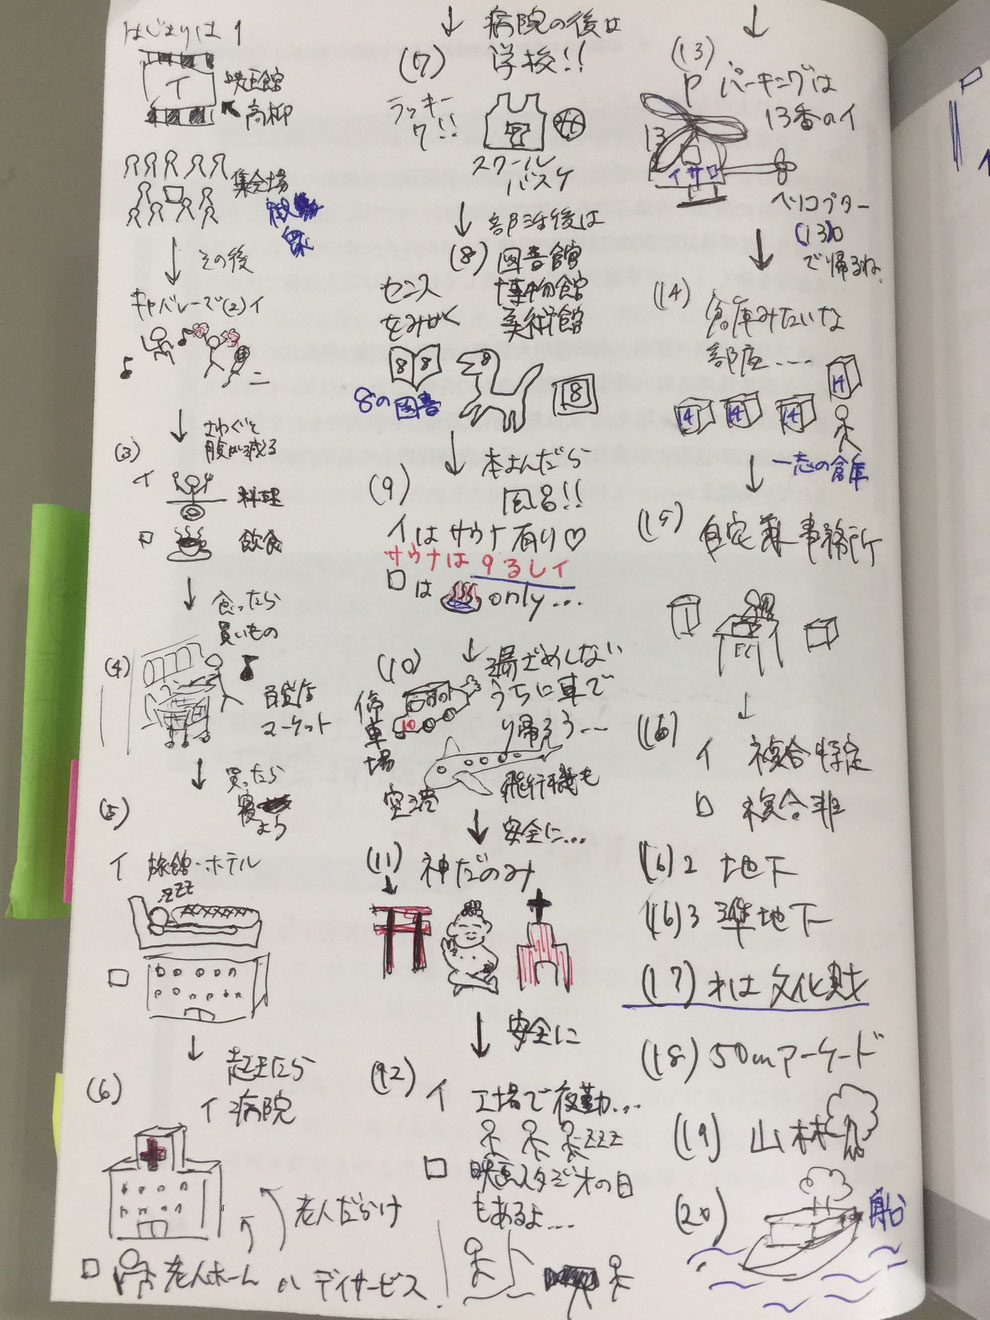 はじまりは1
イ
映画館
高柳
集会場
その後
キャバレーで(2)イ
さわぐと
腹が減る
(3)
イ
料理
ロ
飲食
食ったら
買いもの
(4)
百貨店
マーケット
買ったら
寝
よう
(5)
イ 旅館・ホテル
ZZZ
ロ
起きたら
(6)
イ 病院
老人だかけ
ロ
老人ホーム
ハ デイサービス
病院の後は
(7)
学校!!
ラッキー
7!!
7
スクール
バスケ
部活後は
(8)
図書館
博物館
美術館
センス
をみがく
8 8
8
8
8の図書
本よんだら
(9)
風呂!!
イはサウナ有り♡
サウナは9るしイ
ロは
only...
(10)
湯ざめしない
うちに車で
り帰ろう...
停
車
場
10
空港
飛行機も
安全に...
(11)
神だのみ
安全に
(12)
イ 工場で夜勤...
ZZZ
ロ 映画スタジオの日
もあるよ...
(13)
P パーキングは
13番のイ
13
イサロ
ヘリコプター
(13)ロ
で帰るね
(14)
倉庫みたいな
部屋...
14
14
14
14
一志の倉庫
(15)
自宅兼事務所
(16)
イ 複合特定
ロ 複合非
(16)2 地下
(16)3 準地下
(17)才は文化財
(18)50mアーケード
(19)山林
(20)
船